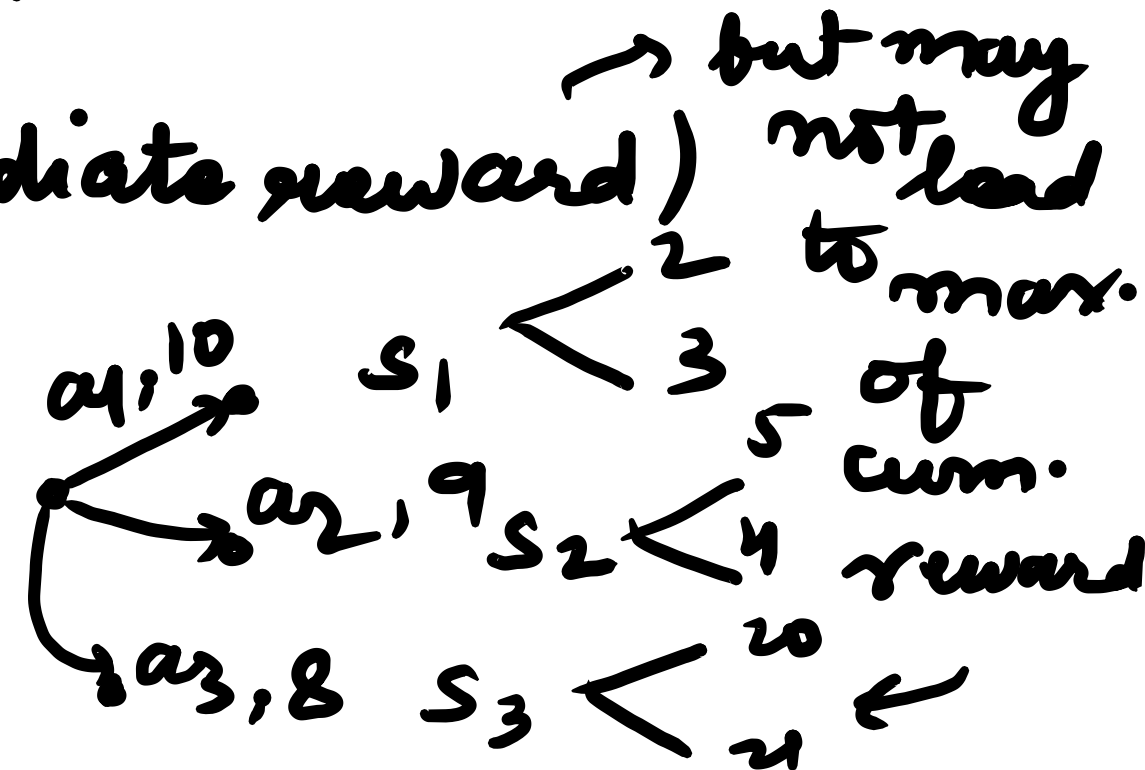 but may
diate reward)
not lead
to max.
of
cum.
reward
a1, 10
S1
2
3
a2, 9
S2
5
4
a3, 8
S3
20
21